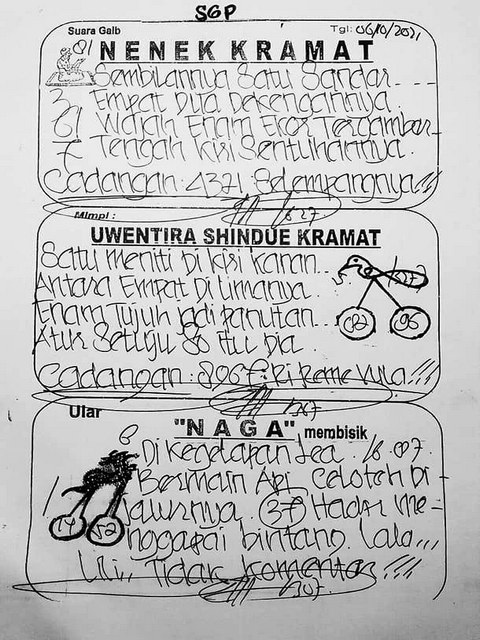 SGP
Suara Gaib
Tgl: 06/10/2021
NENEK KRAMAT
81 Sembilannya Satu Sandar...
3 Empat Dua Dekengannya.
61 Wajah Enam Ekor Tergambar
7 Tengah Kisi Sentuhannya.
Cadangan: 4371 Selempangnya!!!
1827
Mimpi :
UWENTIRA SHINDUE KRAMAT
Satu meniti Di kisi kanan...
Antara Empat Di limanya.
Enam Tujuh jadi panutan...
Atur Setuju 80 itu Dia.
Cadangan: 896
02 96
Ular
"NAGA" membisik
6 Di Kegelapan
Bermain Api, Celoteh Di
1 jalurnya. 37 Hadir me-
14 52 nggapai bintang lalu,,,
Lili.. Tidak komentar !!!